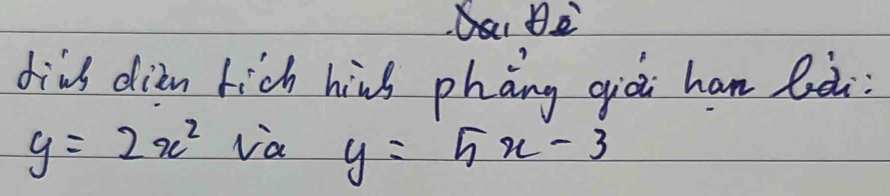 Đại Đề
tính diện tích hình phẳng giới hạn bởi:
y = 2x² và y = 5x - 3